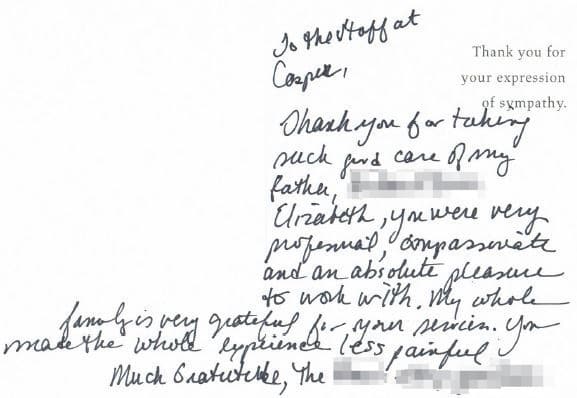 To the Staff at
Casper,
Thank you for
your expression
of sympathy.
Thank you for taking
such good care of my
father,
Elizabeth, you were very
professional, compassionate
and an absolute pleasure
to work with. My whole
family is very grateful for your services. You
made the whole experience less painful
Much Gratitude, The